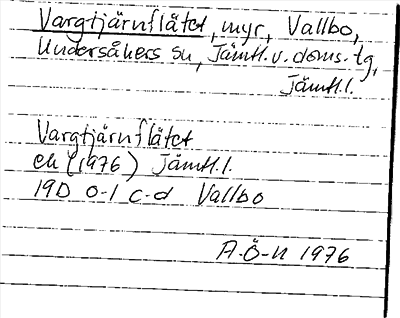 Vargtjärnflåtet, myr, Vallbo,
Undersåkers sn, Jämtl. v. doms. tg,
Jämtl.l.
Vargtjärnflåtet
ek (1976) Jämtl.l.
19D 0-1 c-d Vallbo
A.Ö-n 1976